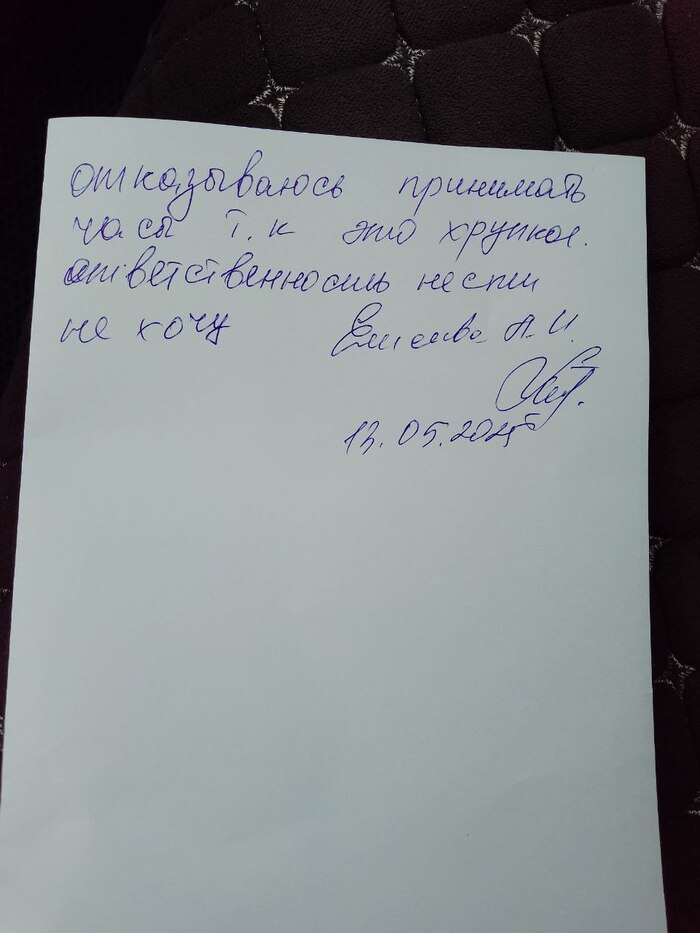 отказываюсь принимать
часы т.к это хрупкое.
ответственность нести
не хочу Елисеева А.И.
13.05.2025